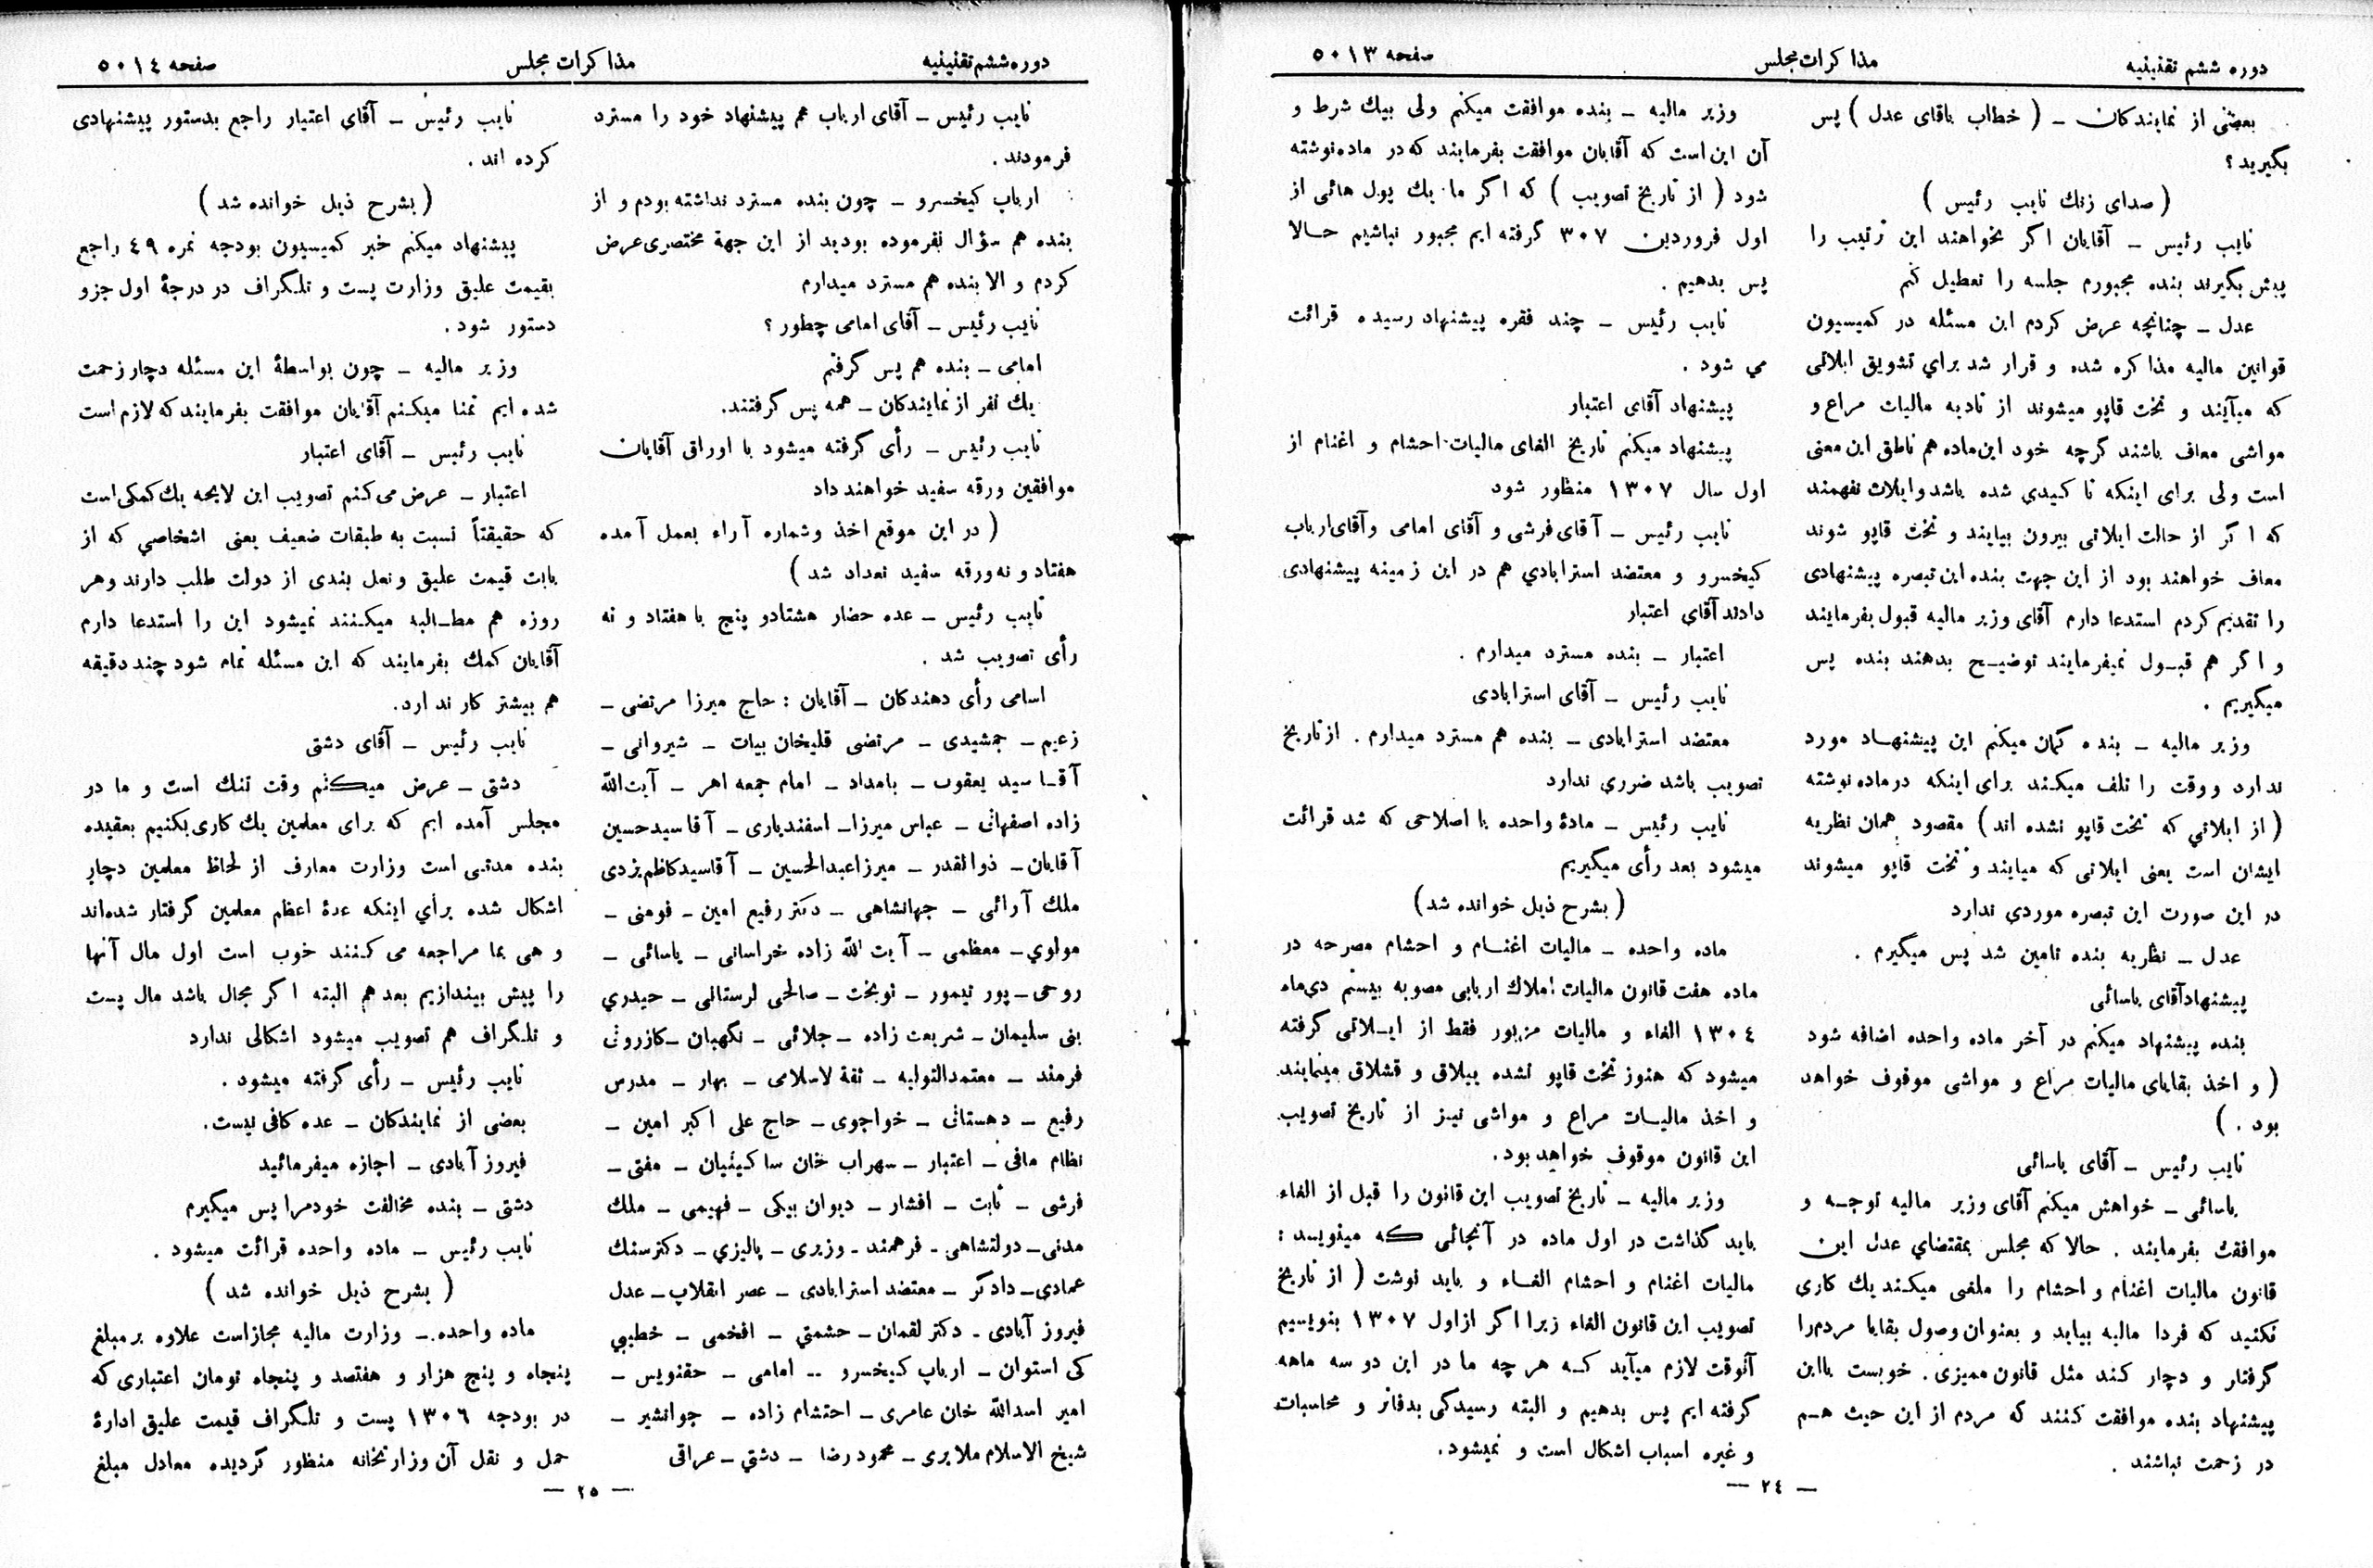 دوره ششم تقنینیه
مذاکرات مجلس
صفحه ۵۰۱۳
بعضی از نمایندگان ــ ( خطاب باقای عدل ) پس
بگیرید ؟
( صدای زنك نایب رئیس )
نایب رئیس ــ آقایان اگر بخواهند این ترتیب را
پیش بگیرند بنده مجبورم جلسه را تعطیل کنم
عدل ــ چنانچه عرض کردم این مسئله در کمیسیون
قوانین مالیه مذاکره شده و قرار شد برای تشویق ایلاتی
که میآیند و تخت قاپو میشوند از تادیه مالیات مراع و
مواشی معاف باشند گرچه خود این ماده هم ناطق این معنی
است ولی برای اینکه تاکیدی شده باشد و ایلات تفهمند
که اگر از حالت ایلاتی بیرون بیایند و تخت قاپو شوند
معاف خواهند بود از این جهت بنده این تبصره پیشنهادی
را تقدیم کردم استدعا دارم آقای وزیر مالیه قبول بفرمایند
و اگر هم قبول نمیفرمایند توضیح بدهند بنده پس
میگیریم .
وزیر مالیه ــ بنده گمان میکنم این پیشنهاد مورد
ندارد و وقت را تلف میکند برای اینکه در ماده نوشته
( از ایلاتی که تخت قاپو نشده اند ) مقصود همان نظریه
ایشان است یعنی ایلاتی که میایند و تخت قاپو میشوند
در این صورت این تبصره موردی ندارد
عدل ــ نظریه بنده تامین شد پس میگیرم .
پیشنهاد آقای یاسائی
بنده پیشنهاد میکنم در آخر ماده واحده اضافه شود
( و اخذ بقایای مالیات مراع و مواشی موقوف خواهد
بود . )
نایب رئیس ــ آقای یاسائی
یاسائی ــ خواهش میکنم آقای وزیر مالیه توجه و
موافقت بفرمایند . حالا که مجلس بمقتضای عدل این
قانون مالیات اغنام و احشام را ملغی میکند یك کاری
نکنید که فردا مالیه بیاید و بعنوان وصول بقایا مردم را
گرفتار و دچار کند مثل قانون ممیزی . خوبست بااین
پیشنهاد بنده موافقت کنند که مردم از این حیث هم
در زحمت نباشند .
وزیر مالیه ــ بنده موافقت میکنم ولی بیك شرط و
آن این است که آقایان موافقت بفرمایند که در ماده نوشته
شود ( از تاریخ تصویب ) که اگر ما یك پول هائی از
اول فروردین ۳۰۷ گرفته ایم مجبور نباشیم حالا
پس بدهیم .
نایب رئیس ــ چند فقره پیشنهاد رسیده قرائت
می شود .
پیشنهاد آقای اعتبار
پیشنهاد میکنم تاریخ الغای مالیات احشام و اغنام از
اول سال ۱۳۰۷ منظور شود
نایب رئیس ــ آقای فرشی و آقای امامی و آقای ارباب
کیخسرو و معتضد استرابادی هم در این زمینه پیشنهادی
دادند آقای اعتبار
اعتبار ــ بنده مسترد میدارم .
نایب رئیس ــ آقای استرابادی
معتضد استرابادی ــ بنده هم مسترد میدارم . از تاریخ
تصویب باشد ضرری ندارد
نایب رئیس ــ مادۀ واحده با اصلاحی که شد قرائت
میشود بعد رأی میگیریم
( بشرح ذیل خوانده شد )
ماده واحده ــ مالیات اغنام و احشام مصرحه در
ماده هفت قانون مالیات املاك اربابی مصوبه بیستم دی ماه
۱۳۰٤ الغاء و مالیات مزبور فقط از ایلاتی گرفته
میشود که هنوز تخت قاپو نشده ییلاق و قشلاق مینمایند
و اخذ مالیات مراع و مواشی نیز از تاریخ تصویب
این قانون موقوف خواهد بود .
وزیر مالیه ــ تاریخ تصویب این قانون را قبل از الغاء
باید گذاشت در اول ماده در آنجائی که مینویسد :
مالیات اغنام و احشام الغاء و باید نوشت ( از تاریخ
تصویب این قانون الغاء زیرا اگر از اول ۱۳۰۷ بنویسیم
آنوقت لازم میآید که هر چه ما در این دو سه ماهه
گرفته ایم پس بدهیم و البته رسیدگی بدفاتر و محاسبات
و غیره اسباب اشکال است و نمیشود .
ــ ۲٤ ــ
دوره ششم تقنینیه
مذاکرات مجلس
صفحه ۵۰۱٤
نایب رئیس ــ آقای ارباب هم پیشنهاد خود را مسترد
فرمودند .
ارباب کیخسرو ــ چون بنده مسترد نداشته بودم و از
بنده هم سؤال نفرموده بودید از این جهة مختصری عرض
کردم و الا بنده هم مسترد میدارم
نایب رئیس ــ آقای امامی چطور ؟
امامی ــ بنده هم پس گرفتم
یك نفر از نمایندگان ــ همه پس گرفتند .
نایب رئیس ــ رأی گرفته میشود با اوراق آقایان
موافقین ورقه سفید خواهند داد
( در این موقع اخذ و شماره آراء بعمل آمده
هفتاد و نه ورقه سفید تعداد شد )
نایب رئیس ــ عده حضار هشتادو پنج با هفتاد و نه
رأی تصویب شد .
اسامی رأی دهندگان ــ آقایان : حاج میرزا مرتضی ــ
زعیم ــ جمشیدی ــ مرتضی قلیخان بیات ــ شیروانی ــ
آقا سید یعقوب ــ بامداد ــ امام جمعه اهر ــ آیت الله
زاده اصفهانی ــ عباس میرزا ــ اسفندیاری ــ آقا سید حسین
آقایان ــ ذوالقدر ــ میرزا عبدالحسین ــ آقاسید کاظم یزدی
ملك آرائی ــ جهانشاهی ــ دکتر رفیع امین ــ فومنی ــ
مولوی ــ معظمی ــ آیت الله زاده خراسانی ــ یاسائی ــ
روحی ــ پور تیمور ــ نوبخت ــ صالحی لرستانی ــ حیدری
بنی سلیمان ــ شریعت زاده ــ جلائی ــ نگهبان ــ کازرونی
فرمند ــ معتمدالتولیه ــ ثقة لاسلامی ــ بهار ــ مدرس
رفیع ــ دهستانی ــ خواجوی ــ حاج علی اکبر امین ــ
نظام مافی ــ اعتبار ــ سهراب خان ساکینیان ــ مفتی ــ
فرشی ــ ثابت ــ افشار ــ دیوان بیکی ــ فهیمی ــ ملك
مدنی ــ دولتشاهی ــ فرهمند ــ وزیری ــ پالیزی ــ دکتر سنك
عمادی ــ دادگر ــ معتضد استرابادی ــ عصر انقلاب ــ عدل
فیروز آبادی ــ دکتر لقمان ــ حشمتی ــ افخمی ــ خطیبی
کی استوان ــ ارباب کیخسرو ــ امامی ــ حقنویس ــ
امیر اسدالله خان عامری ــ احتشام زاده ــ جوانشیر ــ
شیخ الاسلام ملایری ــ محمود رضا ــ دشتی ــ عراقی
نایب رئیس ــ آقای اعتبار راجع بدستور پیشنهادی
کرده اند .
( بشرح ذیل خوانده شد )
پیشنهاد میکنم خبر کمیسیون بودجه نمره ٤۹ راجع
بقیمت علیق وزارت پست و تلگراف در درجۀ اول جزو
دستور شود .
وزیر مالیه ــ چون بواسطۀ این مسئله دچار زحمت
شده ایم تمنا میکنم آقایان موافقت بفرمایند که لازم است
نایب رئیس ــ آقای اعتبار
اعتبار ــ عرض می کنم تصویب این لایحه یك کمکی است
که حقیقتاً نسبت به طبقات ضعیف یعنی اشخاصی که از
بابت قیمت علیق و نعل بندی از دولت طلب دارند و هر
روزه هم مطالبه میکنند نمیشود این را استدعا دارم
آقایان کمك بفرمایند که این مسئله تمام شود چند دقیقه
هم بیشتر کار ندارد .
نایب رئیس ــ آقای دشتی
دشتی ــ عرض میکنم وقت تنك است و ما در
مجلس آمده ایم که برای معلمین یك کاری بکنیم بعقیده
بنده مدتی است وزارت معارف از لحاظ معلمین دچار
اشکال شده برای اینکه عدۀ اعظم معلمین گرفتار شده اند
و هی بما مراجعه می کنند خوب است اول مال آنها
را پیش بیندازیم بعد هم البته اگر مجال باشد مال پست
و تلگراف هم تصویب میشود اشکالی ندارد
نایب رئیس ــ رأی گرفته میشود .
بعضی از نمایندگان ــ عده کافی نیست .
فیروز آبادی ــ اجازه میفرمائید
دشتی ــ بنده مخالفت خودم را پس میگیرم
نایب رئیس ــ ماده واحده قرائت میشود .
( بشرح ذیل خوانده شد )
ماده واحده ــ وزارت مالیه مجاز است علاوه بر مبلغ
پنجاه و پنج هزار و هفتصد و پنجاه تومان اعتباری که
در بودجه ۱۳۰٦ پست و تلگراف قیمت علیق ادارۀ
حمل و نقل آن وزارتخانه منظور گردیده معادل مبلغ
ــ ۲۵ ــ